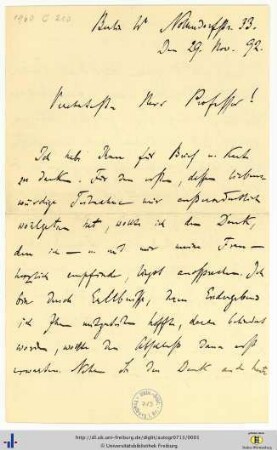 Berlin W Nollendorfstr. 33.
Den 29. Nov. 92.
Verehrtester Herr Professor!
Ich habe Ihnen für Brief u. Karte
zu danken. Für den ersten, dessen liebens-
würdige Teilnahme mir außerordentlich
wohlgetan hat, wollte ich den Dank,
den ich – u. mit mir meine Frau –
herzlich empfinde, längst aussprechen. Ich
bin durch Erlebnisse, deren
ich Ihnen mitzuteilen hoffte, daran behindert
worden, wollte den Abschluß dann erst
erwarten. Nehmen Sie den Dank auch heute
http://dl.ub.uni-freiburg.de/diglit/autogr0713/0001
© Universitätsbibliothek Freiburg